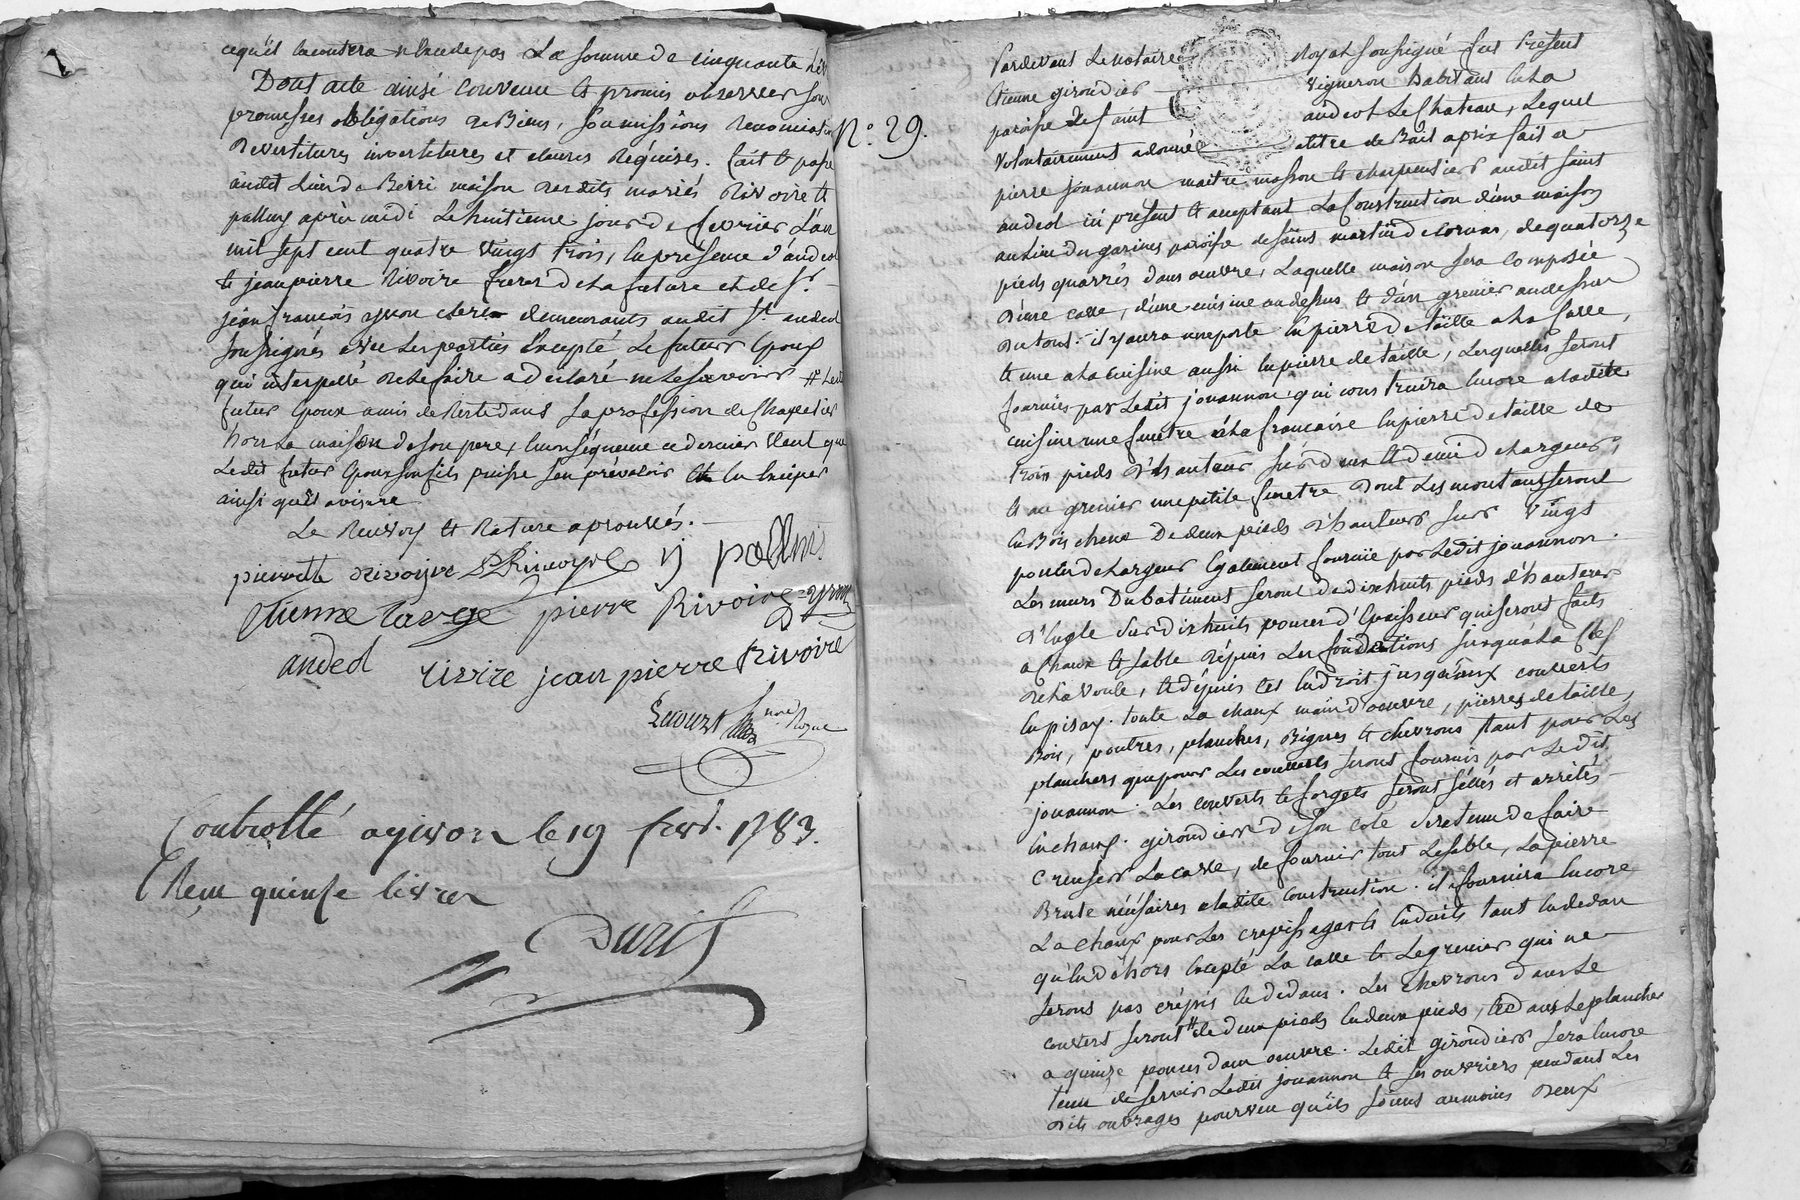 cequ'il laoutera n'excede pas La somme de cinquante Liv
Dont acte ainsi Convenu et promis observer sous
promesses obligations de Biens, soumissions renonciations
Devestitures investitures et clauses Requises. fait et passé
audit Lieu de Berri maison desdits mariés Rivoire et
palluy après midi Le huitieme jour de fevrier L'an
mil sept cent quatre vingt trois, en présence d'andeol
et jean pierre Rivoire freres de La future et de Sr.
jean francois yvon clerc demeurants audit St. andeol
soussignés avec Les parties Excepté Le futur Epoux
qui interpellé de Le faire a déclaré ne Le savoir # Led
futur Epoux amis de Reste dans sa profession de Charpentier
hors La maison de son pere, Enconséquence ce dernier veut que
Ledit futur Epoux son fils puisse s'en prevaloir et en exciper
ainsi qu'il avisera
Le Renvoy et Rature aprouvés.
pierrette rivoyre
Etienne large pierre Rivoire yvon
andeol rivire jean pierre Rivoire
Controllé a givors le 19 fevr. 1783.
Reçu quinse livres
N.o 29.
Pardevant Le Notaire Royal soussigné fut Présent
Etienne girondier vigneron habitant en La
paroisse de saint andeol Le Chateau, Lequel
volontairement a donné a titre de Bail a prix fait a
pierre jouannon maitre masson et charpentier audit saint
andeol ici présent et aceptant La Construction d'une maison
au Lieu du garines paroisse de saint martin de Cornas, de quatorze
pieds quarrés dans oeuvre, Laquelle maison sera Composée
d'une cave, d'une cuisine audessus et d'un grenier audessus
du tout. il y aura une porte En pierre de taille a La Cave,
et une a La cuisine aussi En pierre de taille, Lesquelles seront
fournies par Ledit jouannon qui construira Encore a Ladite
cuisine une fenetre a La francaise En pierre de taille de
trois pieds d'hauteur sur deux et demi de largeur,
et au grenier une petite fenetre dont Les montants seront
En Bois chene de deux pieds d'hauteur sur vingt
pouces de Largeur Egalement fournie par Ledit jouannon.
Les murs du batiment seront de dixhuit pieds d'hauteur
d'Engle sur dixhuit pouces d'Epaisseur qui seront faits
a Chaux et sable depuis Les fondations jusqu'a La Clef
de La voute, et depuis cet Endroit jusqu'aux couverts
En pisay. toute La chaux main d'oeuvre, pierres de taille,
Bois, poutres, planches, Bigues et chevrons tant pour Les
planchers que pour Les couverts seront fournis par Ledit
jouannon. Les couverts et forgets seront sellés et arrêtés
En chaux. girondier de son coté sera tenu de faire
Creuser La cave, de fournir tout Le sable, La pierre
Brute nécessaires a Ladite Construction. il fournira Encore
La chaux pour Les crepissages et Enduits tant En dedans
qu'En déhors Excepté La cave et Le grenier qui ne
seront pas crépis En dedans. Les Chevrons dans Le
couvert seront # de deux pieds En deux pieds, et dans Le plancher
a quinze pouces dans oeuvre. Ledit girondier sera Encore
tenu de servir Ledit jouannon et ses ouvriers pendant Les
dits ouvrages pourveu qu'ils soient aumoins deux